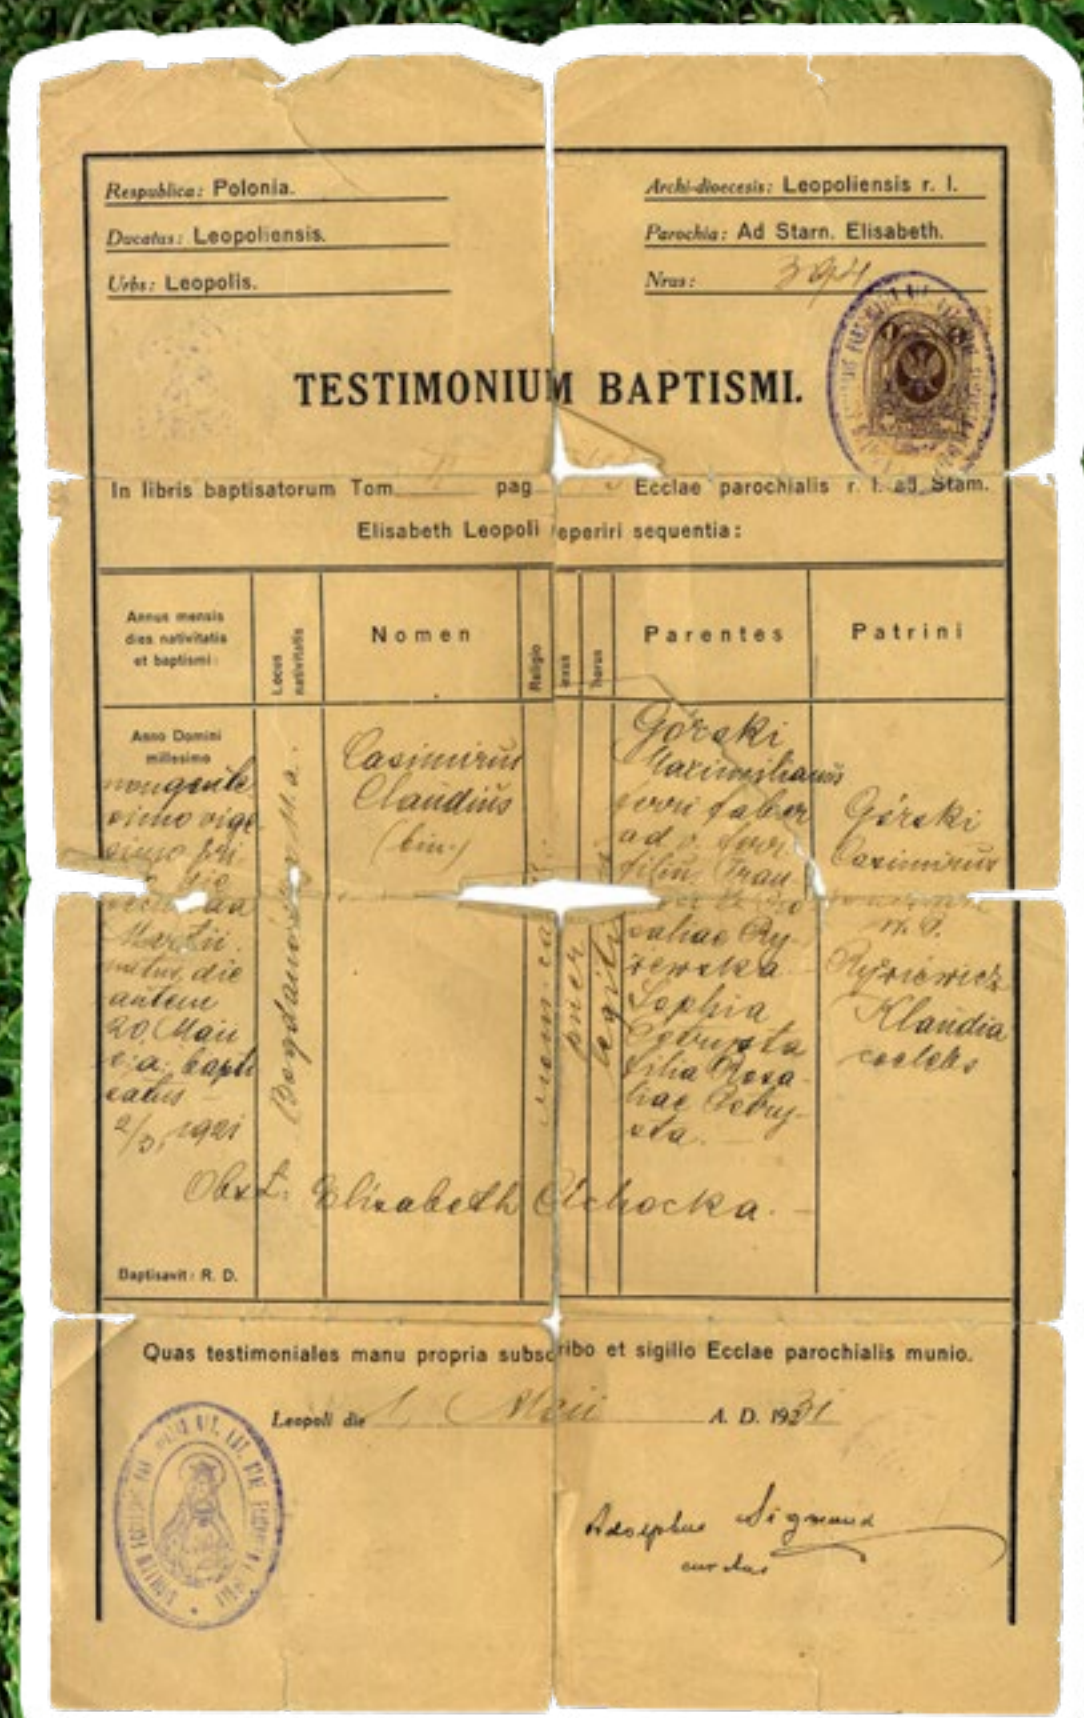 Respublica: Polonia.
Ducatus: Leopoliensis.
Urbs: Leopolis.
Archi-dioecesis: Leopoliensis r. l.
Parochia: Ad Stam. Elisabeth.
Nrus: 394
TESTIMONIUM BAPTISMI.
In libris baptisatorum Tom pag Ecclae parochialis r. l. ad Stam.
Elisabeth Leopoli reperiri sequentia:
Annus mensis
dies nativitatis
et baptismi:
Locus
nativitatis
Nomen
Religio
exus
horus
Parentes
Patrini
Anno Domini
millesimo
nongente
simo vige
simo pri
Martii
natus, die
autem
20 Maii
e. a. bapti
satus
2/3, 1921
Bogdanówka 11 a.
Casimirus
Claudius
(bin.)
rom. ca
puer
legit
Górski
Maximilianus
ferri faber
ad v. ferr.
filius Fran
saliae Ry
żewska
Sophia
Petrysta
filia Rosa-
liae Petry-
sta.
Górski
Casimirus
Ryniewicz
Klaudia
coelebs
Obst. Elisabeth Cichocka.
Baptisavit: R. D.
Quas testimoniales manu propria subscribo et sigillo Ecclae parochialis munio.
Leopoli die 1. Maii A. D. 1931
Adolphus Sigmund